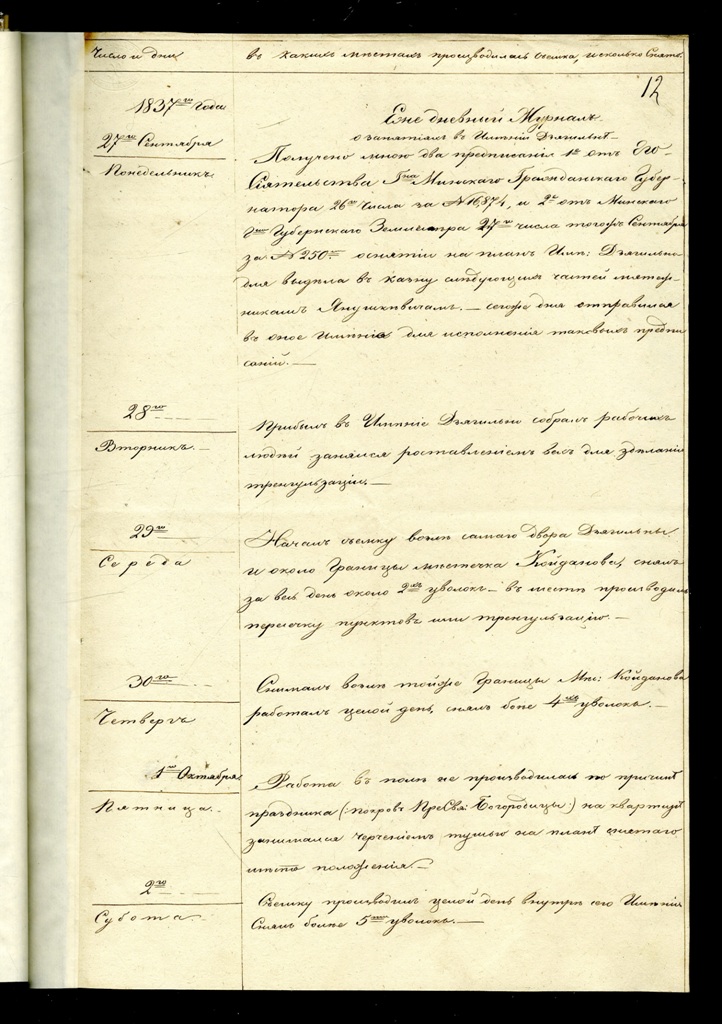 Число и дни
въ какихъ мѣстахъ производилась съемка, и сколько Снято.
12
1837го Года
27го Сентября
Понедельникъ
Ежедневный Журналъ
о занятіяхъ въ Имѣніи Дзягильнѣ
Получено мною два предписанія 1е отъ Его
Сіятельства Гна Минскаго Гражданскаго Губер-
натора 26го Числа за №16,874, и 2е отъ Минскаго
Губернскаго Землемѣра 27го числа тогожъ Сентября
за №250 о снятіи на планъ Имѣ: Дзягильно
для выдѣла въ казну слѣдующихъ частей мятеж-
никамъ Янушкевичамъ. — сегоже дня отправился
въ оное Имѣніе для исполненія таковыхъ предпи
саній. —
28го
Вторникъ. —
Прибылъ въ Имѣніе Дзягильно собралъ рабочихъ
людей занялся роставленіемъ вехъ для зделанія
тренгульзаціи. —
29го
Середа
Началъ съемку возлѣ самаго двора Дзягильны
и около Границы мѣстечка Койданова, снялъ
за весь день около 2хъ уволокъ — въ мѣстѣ производилъ
пересечку пунктовъ или тренгульзацію. —
30го
Четвергъ
Снималъ возлѣ тойже Границы Мѣ: Койданова
работалъ целой день, снялъ боле 4хъ уволокъ. —
1го Октября
Пятница.
Работа въ полѣ не производилась по причинѣ
праздника (: покровъ ПреСвя: Богородицы :) на квартирѣ
занимался черченіемъ тушью на планѣ снятаго
положенія. —
2го
Субота
Съемку производилъ целой день внутри сего Имѣнія
Снялъ более 5ти уволокъ. —